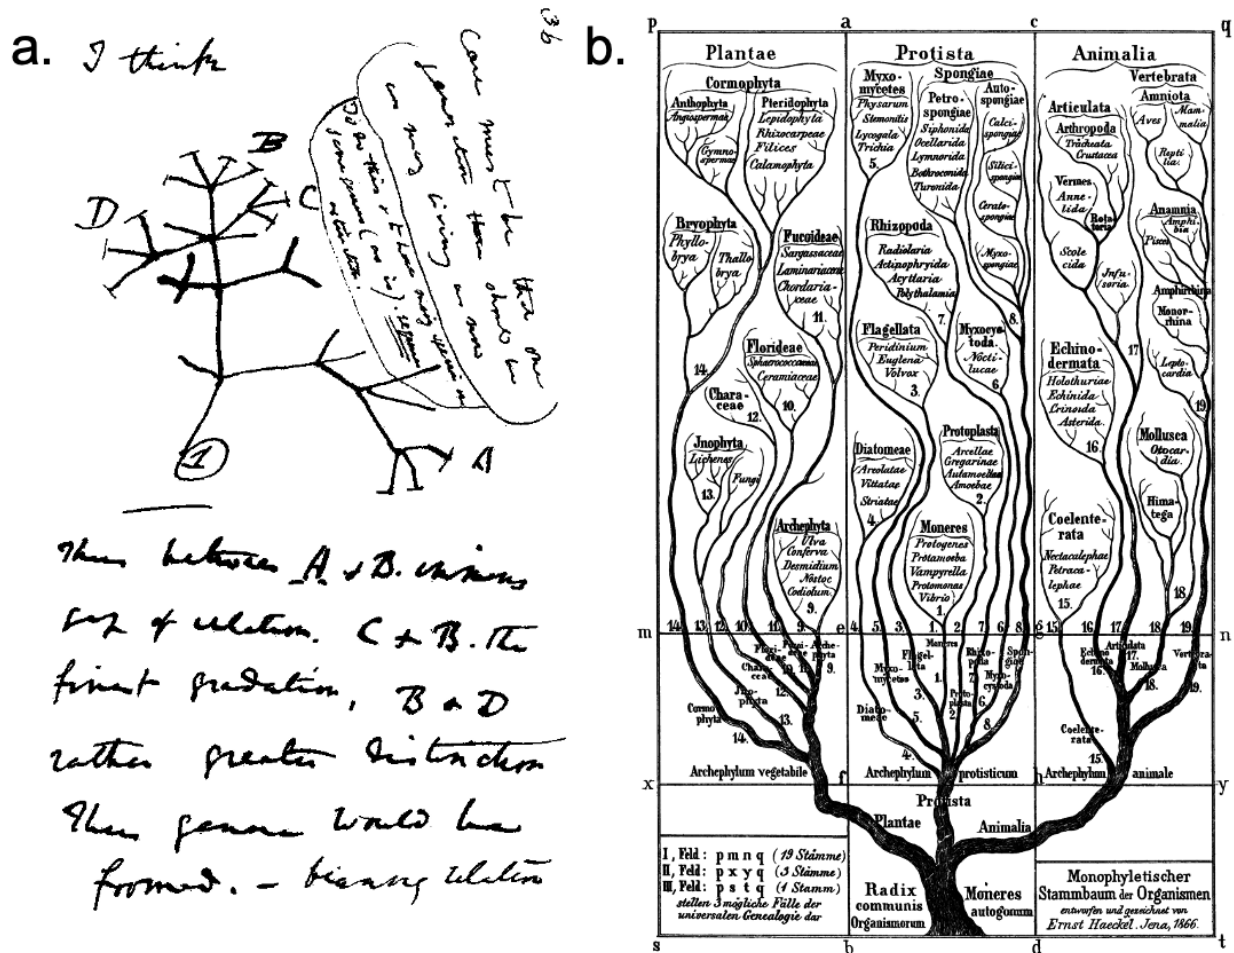 a.
I think
36
Case must be that one
generation then should be
as many living as now
To do this & to have many species in
same genus (as is). requires
extinction.
B
C
D
A
1
Thus between A & B. immens
gap of relation. C & B. the
finest gradation, B & D
rather greater distinction
Thus genera would be
formed. — bearing relation
b.
p a c q
Plantae
Cormophyta
Anthophyta
Angiospermae
Gymno-
spermae
Pteridophyta
Lepidophyta
Rhizocarpeae
Filices
Calamophyta
Bryophyta
Phyllo-
brya
Thallo-
brya
Fucoideae
Sargassaceae
Laminariaceae
Chordaria-
ceae
11.
Florideae
Sphaerococcaceae
Ceramiaceae
10.
14.
Chara-
ceae
12.
Jnophyta
Lichenes
Fungi
13.
Archephyta
Ulva
Conferva
Desmidium
Nostoc
Codiolum
9.
Protista
Myxo-
mycetes
Physarum
Stemonitis
Lycogala
Trichia
5.
Spongiae
Petro-
spongiae
Siphonida
Ocellarida
Lymnorida
Bothroconida
Turonida
Auto-
spongiae
Calci-
spongiae
Silici-
spongiae
Cerato-
spongiae
Myxo-
spongiae
8.
Rhizopoda
Radiolaria
Actinophryida
Acyttaria
Polythalamia
7.
Flagellata
Peridinium
Euglena
Volvox
3.
Myxocys-
toda.
Nocti-
lucae
6
Diatomeae
Areolatae
Vittatae
Striatae
4.
Protoplasta
Arcellae
Gregarinae
Autamoebae
Amoebae
2.
Moneres
Protogenes
Protamoeba
Vampyrella
Protomonas
Vibrio
1.
Animalia
Vertebrata
Amniota
Aves
Mam-
malia
Repti
lia.
Articulata
Arthropoda
Tracheata
Crustacea
Vermes
Anne-
lida
Rota-
toria
Scole
cida
Infu-
soria
17
Anamnia
Amphi-
bia
Pisces
Amphirrhina
Monor-
rhina
Lepto-
cardia
19.
Echino-
dermata
Holothuriae
Echinida
Crinoida
Asterida.
16.
Mollusca
Otocar-
dia.
Hima-
tega
18.
Coelente-
rata
Nectacalephae
Petraca-
lephae
15.
m 14. 13. 12. 10. 11. 9. e 4. 5. 3. 1. 2. 7. 6. 8. g 15. 16. 17. 18. 19. n
Flori-
deae
10.
Fucoi-
deae
11.
Arche-
phyta
9.
Chara-
ceae
12.
Jno-
phyta
13.
Cormo
phyta
14.
Moneres
1.
Flagel-
lata
3.
Myxo-
mycetes
5.
Diato-
meae
4.
Proto-
plasta
2.
Rhizo-
poda
7.
Myxo-
cystoda
6.
Spon-
giae
8.
Echino
dermata
16.
Articulata
17.
Mollusca
18.
Vertebra-
ta
19.
Coelente-
rata
15.
Archephylum vegetabile
Archephylum protisticum
Archephylum animale
x f h y
Plantae
Protista
Animalia
I, Feld: p m n q (19 Stämme)
II, Feld: p x y q (3 Stämme)
III, Feld: p s t q (1 Stamm)
stellen 3 mögliche Fälle der
universalen Genealogie dar
Radix
communis
Organismorum
Moneres
autogonum
Monophyletischer
Stammbaum der Organismen
entworfen und gezeichnet von
Ernst Haeckel. Jena, 1866.
s b d t